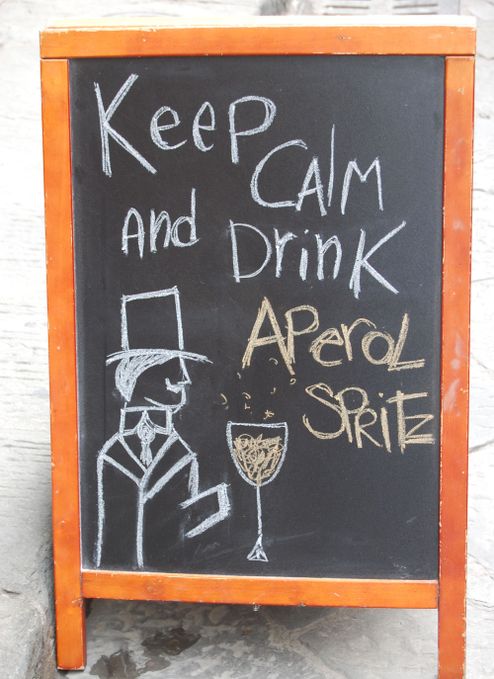 Keep
CAlM
And Drink
APeroL
SPRiTZ